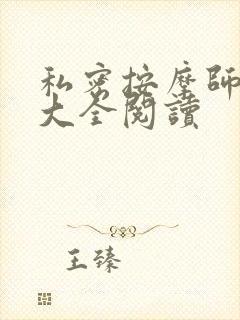 私密按摩師
大全閱讀
王臻